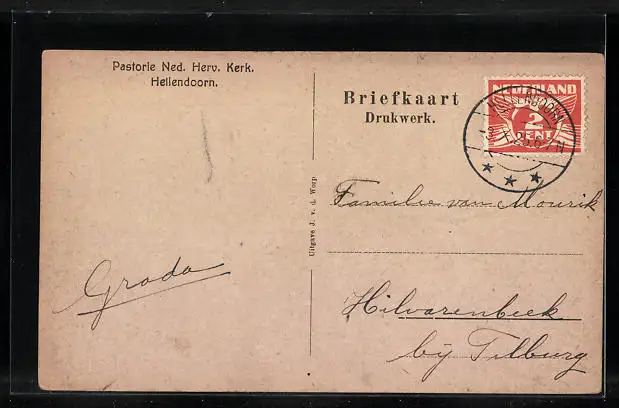 Pastorie Ned. Herv. Kerk.
Hellendoorn.
Briefkaart
Drukwerk.
NEDERLAND
2
CENT
Uitgave J. v. d. Worp
Familie van Mourik
Grada
Hilvarenbeek
bij Tilburg